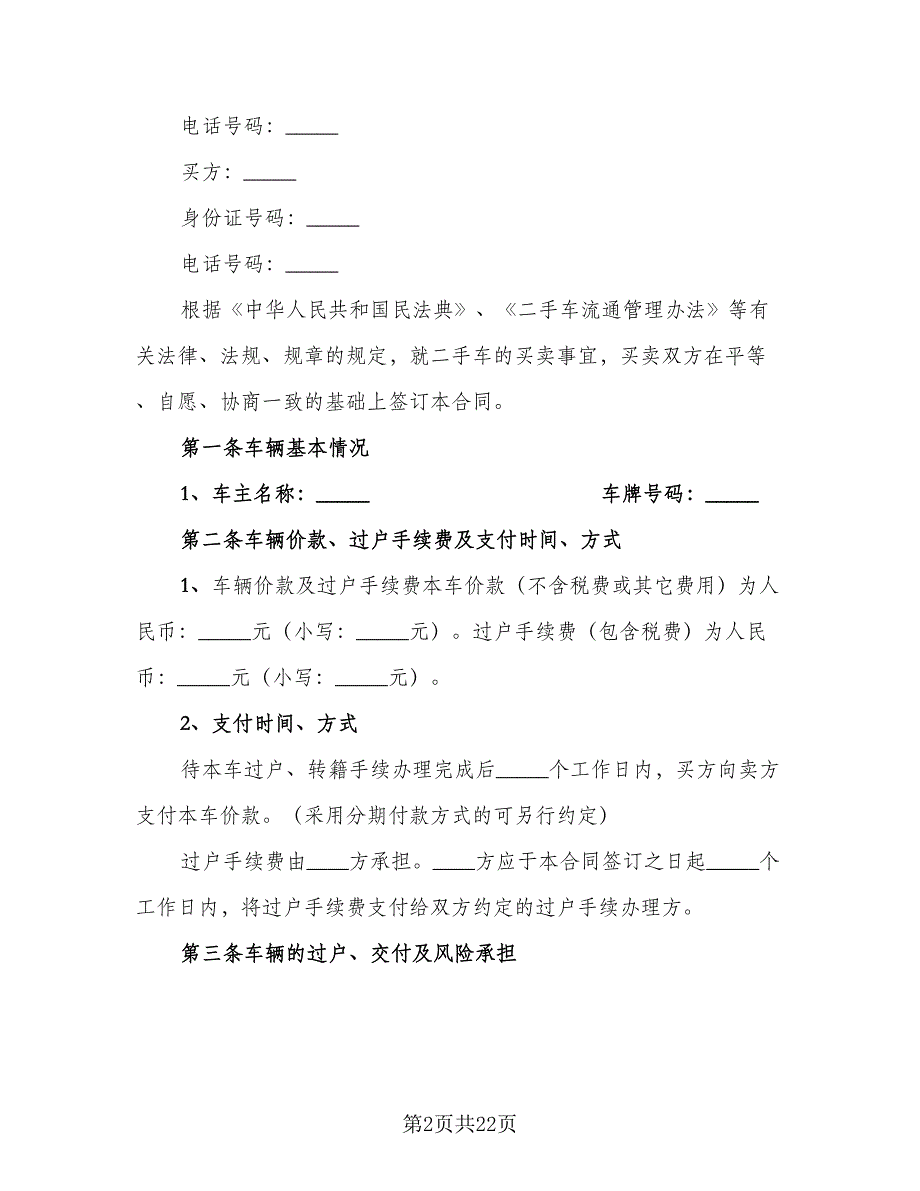 电话号码：_____
买方：_____
身份证号码：_____
电话号码：_____
根据《中华人民共和国民法典》、《二手车流通管理办法》等有
关法律、法规、规章的规定，就二手车的买卖事宜，买卖双方在平等
、自愿、协商一致的基础上签订本合同。
第一条车辆基本情况
1、车主名称：_____ 车牌号码：_____
第二条车辆价款、过户手续费及支付时间、方式
1、车辆价款及过户手续费本车价款（不含税费或其它费用）为人
民币：_____元（小写：_____元）。过户手续费（包含税费）为人民
币：_____元（小写：_____元）。
2、支付时间、方式
待本车过户、转籍手续办理完成后_____个工作日内，买方向卖方
支付本车价款。（采用分期付款方式的可另行约定）
过户手续费由____方承担。____方应于本合同签订之日起_____个
工作日内，将过户手续费支付给双方约定的过户手续办理方。
第三条车辆的过户、交付及风险承担
第2页共22页